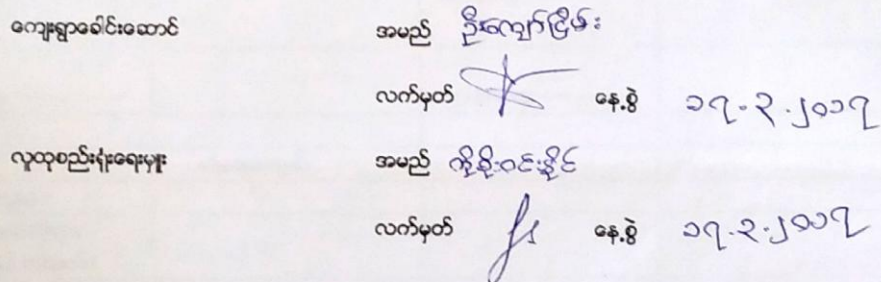 ကျေးရွာခေါင်းဆောင် အမည် ဦးကျော်ငြိမ်း
လက်မှတ် နေ့စွဲ ၁၇.၃.၂၀၁၇
လူထုစည်းရုံးရေးမှူး အမည် ကိုစိုးဝင်းနိုင်
လက်မှတ် နေ့စွဲ ၁၇.၃.၂၀၁၇